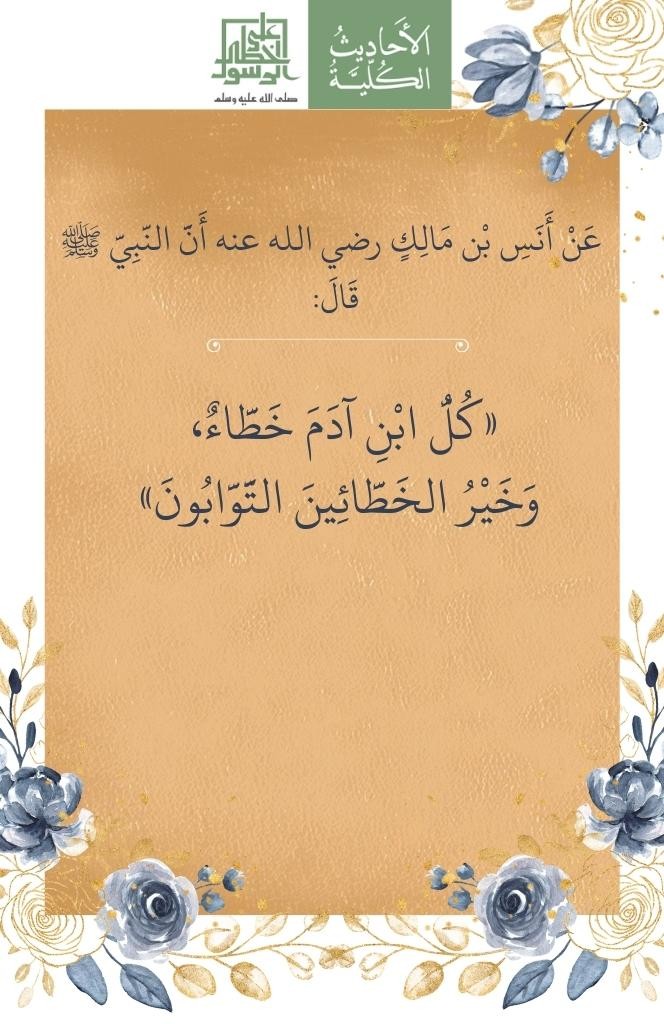 على
خطى
الرسول
صلى الله عليه وسلم
الأَحَادِيثُ
الكُلِّيَّةُ
عَنْ أَنَسِ بْن مَالِكٍ رضي الله عنه أَنَّ النّبِيّ ﷺ
قَالَ:
«كُلُّ ابْنِ آدَمَ خَطّاءٌ،
وَخَيْرُ الخَطّائِينَ التّوّابُونَ»